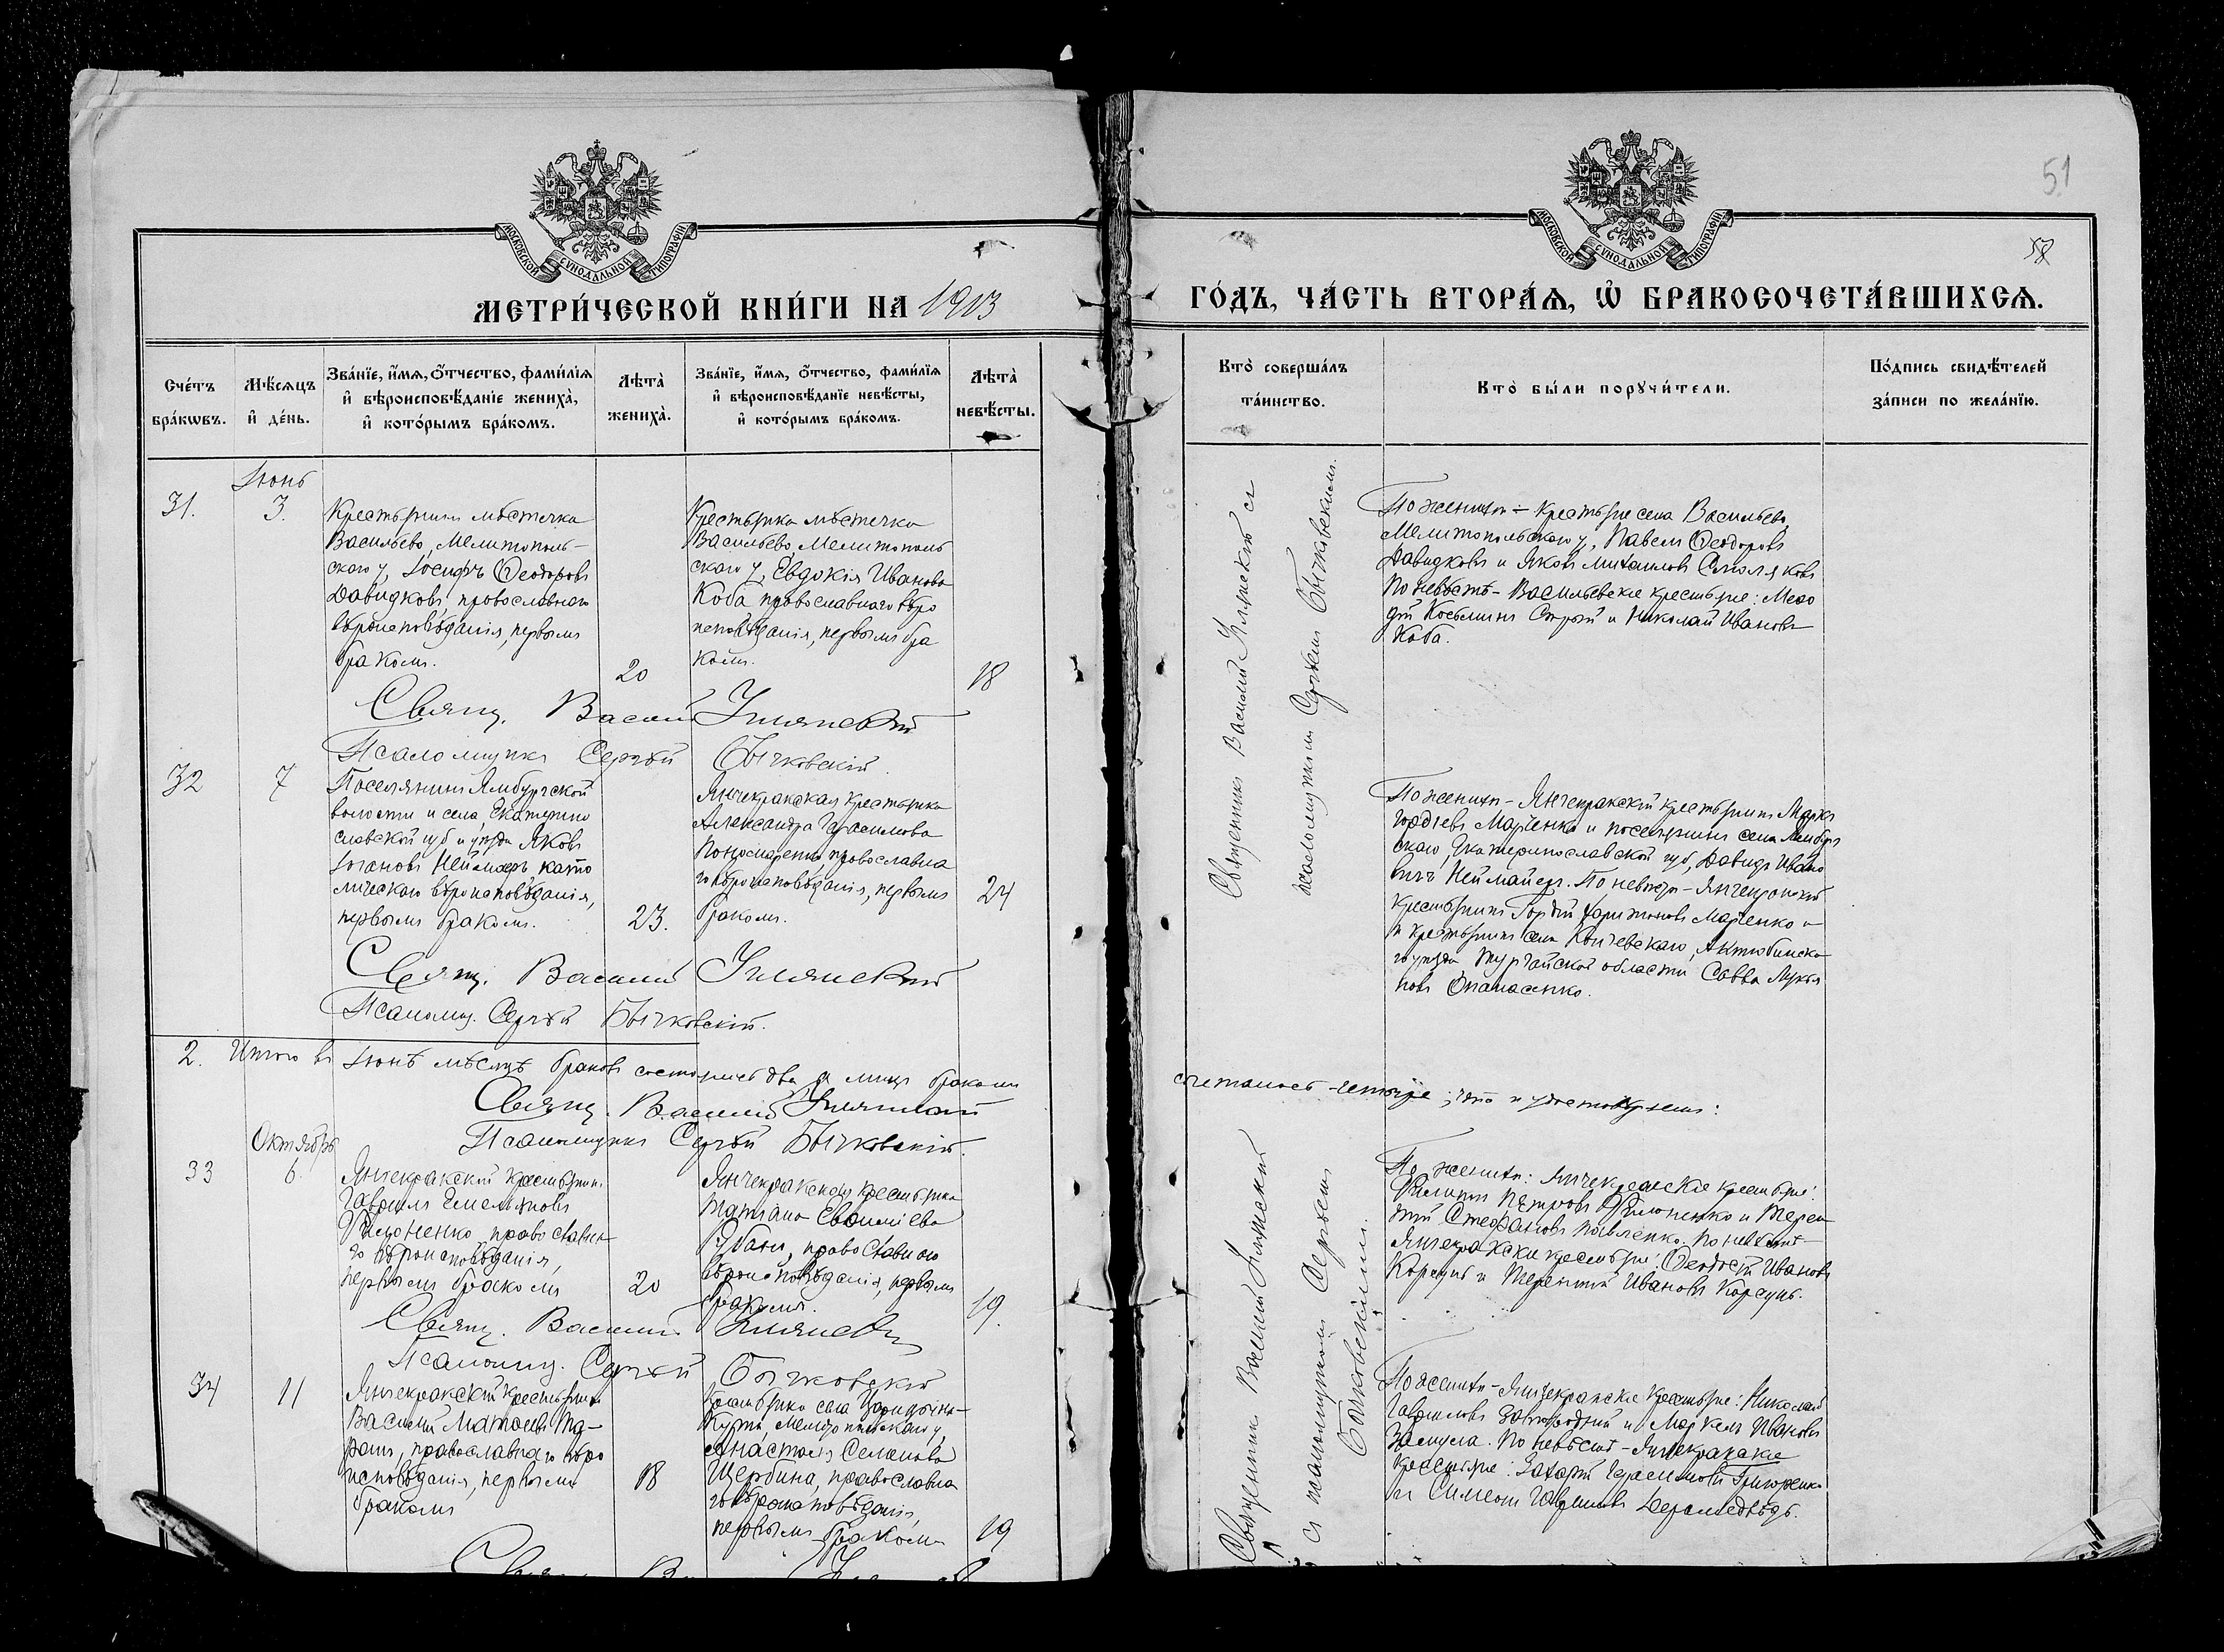 51
58
МОСКОВСКОЙ СѴНОДАЛЬНОЙ ТИПОГРАФІИ
МОСКОВСКОЙ СѴНОДАЛЬНОЙ ТИПОГРАФІИ
МЕТРИ́ЧЕСКОЙ КНИ́ГИ НА 1913
ГО́ДЪ, ЧА́СТЬ ВТОРА́Я, Ѡ҆ БРАКОСОЧЕТА́ВШИХСЯ.
Сче́тъ
бра́кѡвъ.
Мѣ́сяцъ
и҆ де́нь.
Зва́нїе, и҆́мя, ѻ҆́тчество, фами́лїя
и҆ вѣроисповѣ́данїе жениха̀,
и҆ кото́рымъ бра́комъ.
Лѣта̀
жениха̀.
Зва́нїе, и҆́мя, ѻ҆́тчество, фами́лїя
и҆ вѣроисповѣ́данїе невѣ́сты,
и҆ кото́рымъ бра́комъ.
Лѣта̀
невѣ́сты.
Кто̀ соверша́лъ
та́инство.
Кто̀ бы́ли порꙋчи́тели.
По́дпись свидѣ́телей
за́писи по жела́нїю.
31.
Іюнь
3.
Крестьянинъ мѣстечка
Васильево, Мелитополь-
скаго у, Іосифъ Ѳеодоровъ
Давидковъ, православнаго
вѣроисповѣданія, первымъ
бракомъ.
20
Крестьянка мѣстечка
Васильево, Мелитополь
скаго у, Евдокія Иванова
Коба православнаго вѣро
исповѣданія, первымъ бра
комъ.
18
Священникъ Василій
псаломщикомъ Сергѣемъ Бычковскимъ.
По женихѣ - крестьяне села Васильево,
Мелитопольскаго у, Павелъ Ѳеодоровъ
Давидковъ и Яковъ Михаиловъ Смоляковъ
По невѣстѣ - Васильевские крестьяне: Меѳо
дій Косьминъ Строй и Николай Ивановъ
Коба.
Свящ. Василій
Псаломщикъ Сергѣй Бычковскій.
32
7
Поселянинъ Ямбургской
волости и села, Екатерино
славской губ и уѣзда Яковъ
Іогановъ Неймаеръ като
лическаго вѣроисповѣданія,
первымъ бракомъ.
23.
Янчекракская крестьянка
Александра Герасимова
Пономаренко православна
го вѣроисповѣданія, первымъ
бракомъ.
24
По женихѣ - Янчекракскій крестьянинъ Марко
Гордіевъ Марченко и поселянинъ села Ямбург
скаго, Екатеринославской губ, Давидъ Ивано
вичъ Неймайеръ. По невѣстѣ - Янчекракскій
крестьянинъ Гордій Харитоновъ Марченко и
и крестьянинъ села Актюбинска
го уѣзда Тургайской области Савва Лукья
новъ Опанасенко.
Свящ. Василій
Псаломщ. Сергѣй Бычковскій.
2. Итого въ Іюнѣ мѣсяцѣ браковъ состоялись два, а лицъ бракомъ
сочеталось четыре, что и удостовѣряемъ:
Свящ. Василій
Псаломщикъ Сергѣй Бычковскій.
33
Октябрь
6.
Янчекракскій крестьянинъ
Гавріилъ Емельяновъ
Филоненко, православна
го вѣроисповѣданія,
первымъ бракомъ
20
Янчекракская крестьянка
Татіана
православнаго
вѣроисповѣданія, первымъ
бракомъ.
19.
Священникъ Василій
съ псаломщикомъ Сергѣемъ
Бычковскимъ.
По женихѣ: Янчекракскіе крестьяне:
Филиппъ Петровъ Филоненко и Терен
тій Стефановъ Павленко. По невѣстѣ -
Янчекракскіе крестьяне: Ѳеодосій Ивановъ
Корсунь и Терентій Ивановъ Корсунь.
Свящ. Василій
Псаломщ. Сергѣй Бычковскій
34
11
Янчекракскій крестьянинъ
Василій Матѳеевъ Та-
ранъ, православнаго вѣро
исповѣданія, первымъ
бракомъ
18
Крестьянка села Царицынъ-
Кутъ, Мелитопольскаго у,
Анастасія Семенова
Щербина, православна
го вѣроисповѣданія,
первымъ бракомъ
19
По женихѣ - Янчекракскіе крестьяне: Николай
Гавриловъ Загородній и Маркелъ Ивановъ
Замула. По невѣстѣ - Янчекракскіе
крестьяне: Захарій Герасимовъ Григоренко
и Симеонъ Гавриловъ